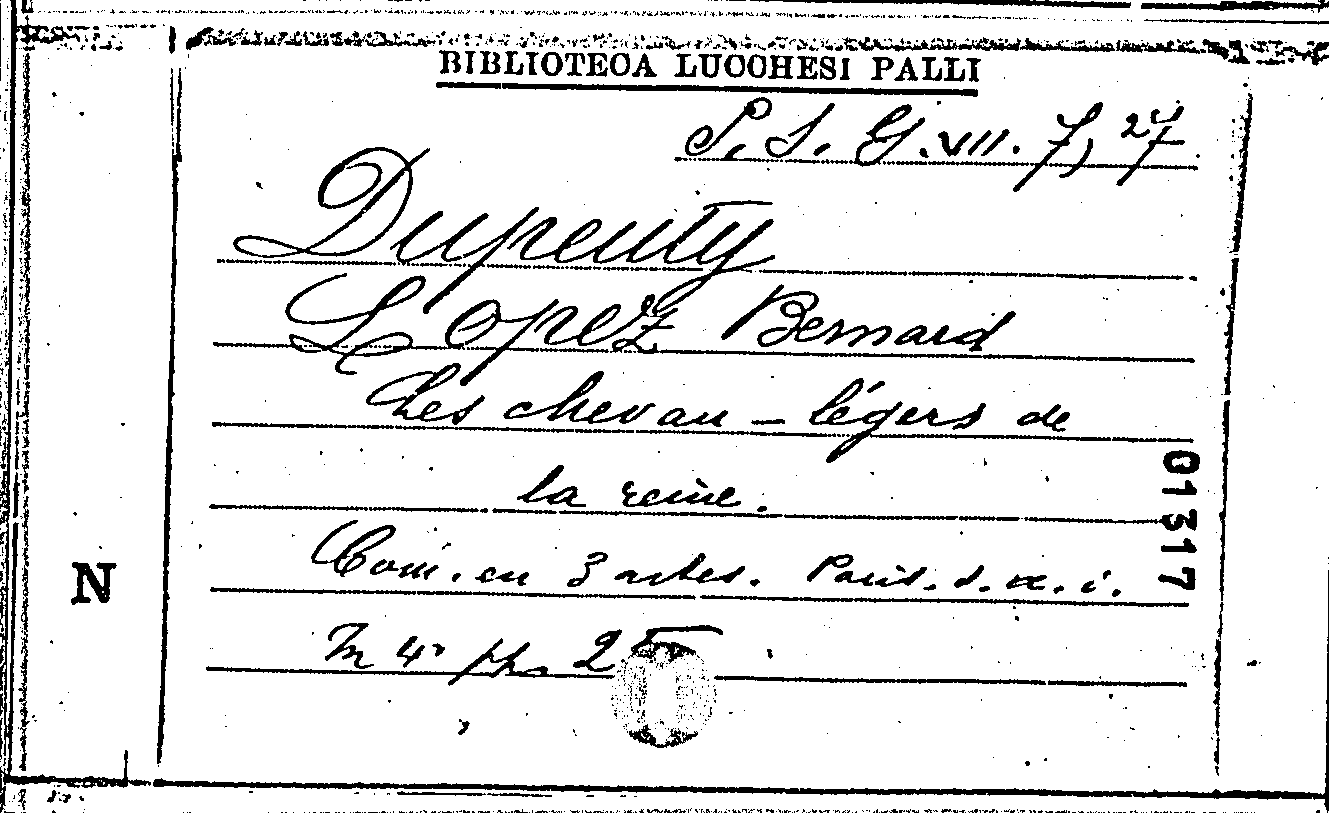 BIBLIOTECA LUCCHESI PALLI
S. S. G. VII. 7, 27
Dupeuty
Lopez Bernard
Les chevau-légers de
la reine.
01317
Com. en 3 actes. Paris.
N
In 4°